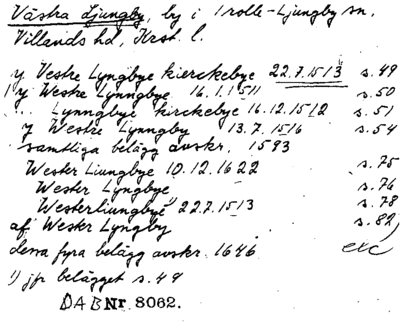 Västra Ljungby, by i Trolle-Ljungby sn,
Villands hd, Krst. l.
y Vestre Lyngbye kierckebye 22.7.1513 s. 49
1) y Westre Lynngbye 16.1.1511 s. 50
... Lynngbye kirckebye 16.12.1512 s. 51
y Westre Lynngby 13.7.1516 s. 54
samtliga belägg avskr. 1593
Wester Liungbye 10.12.1622 s. 75
Wester Lyngbye s. 76
Westerliungbye 1) 22.7.1513 s. 78
af Wester Lyngby s. 82,
dessa fyra belägg avskr. 1646 etc
1) jfr belägget s. 49
DAB Nr 8062.